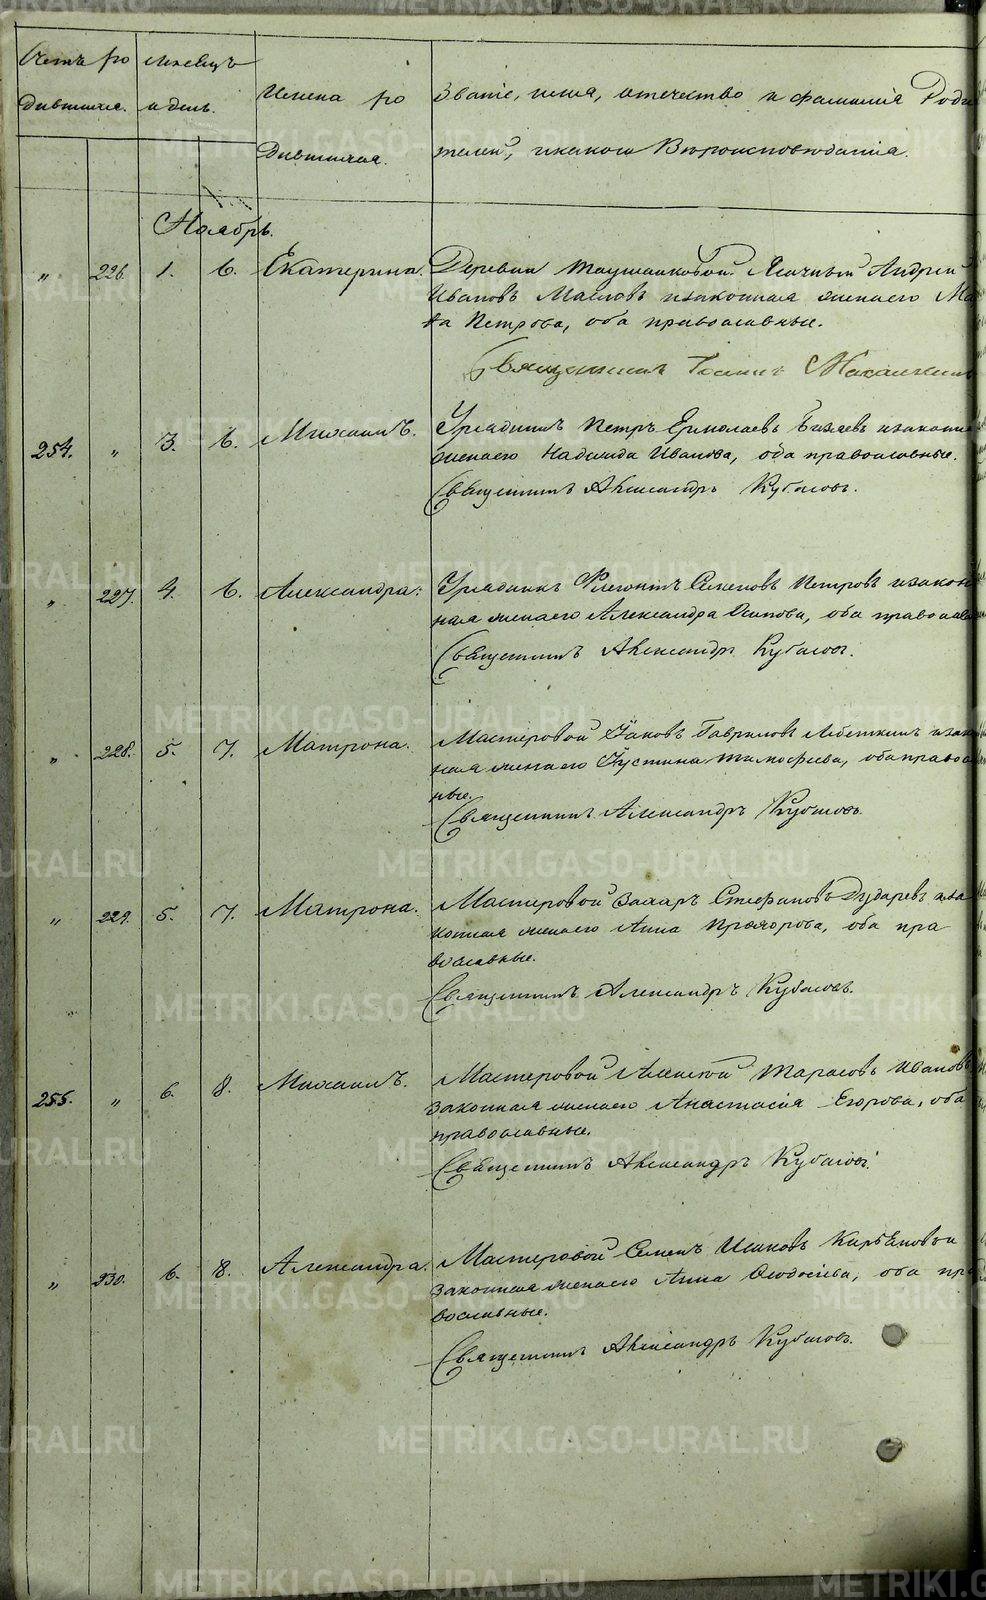 Счетъ ро мѣсяцъ
дившихся. и день. Имена ро Званіе, имя, отечество и фамилія Роди
дившихся. телей, и какого Вѣроисповѣданія.
Ноябрь.
„ 226. 1. 6. Екатерина. Деревни Таушканковой Ясачный Андрей
Ивановъ Масловъ и законная жена его
Петрова, оба православные.
Священникъ Іоаннъ
254. „ 3. 6. Михаилъ. Урядникъ Петръ Ермолаевъ и законная
жена его Надежда Иванова, оба православные.
Священникъ Александръ Кубасовъ.
„ 227. 4. 6. Александра. Урядникъ Флегонтъ Семеновъ Петровъ и закон
ная жена его Александра Осипова, оба православ
Священникъ Александръ Кубасовъ.
„ 228. 5. 7. Матрона. Мастеровой Іаковъ Гавриловъ Лебеткинъ и закон
ная жена его Іустина Тимофеева, оба правосла
ные.
Священникъ Александръ Кубасовъ.
„ 229. 5. 7. Матрона. Мастеровой Захаръ Стефановъ Дударевъ и за
конная жена его Анна Прохорова, оба пра
вославные.
Священникъ Александръ Кубасовъ.
255. „ 6. 8. Михаилъ. Мастеровой Алексѣй Тарасовъ Ивановъ
законная жена его Анастасія Егорова, оба
православные.
Священникъ Александръ Кубасовъ.
„ 230. 6. 8. Александра. Мастеровой Семенъ Исаковъ
законная жена его Анна Ѳеодосіева, оба пра
вославные.
Священникъ Александръ Кубасовъ.
METRIKI.GASO-URAL.RU